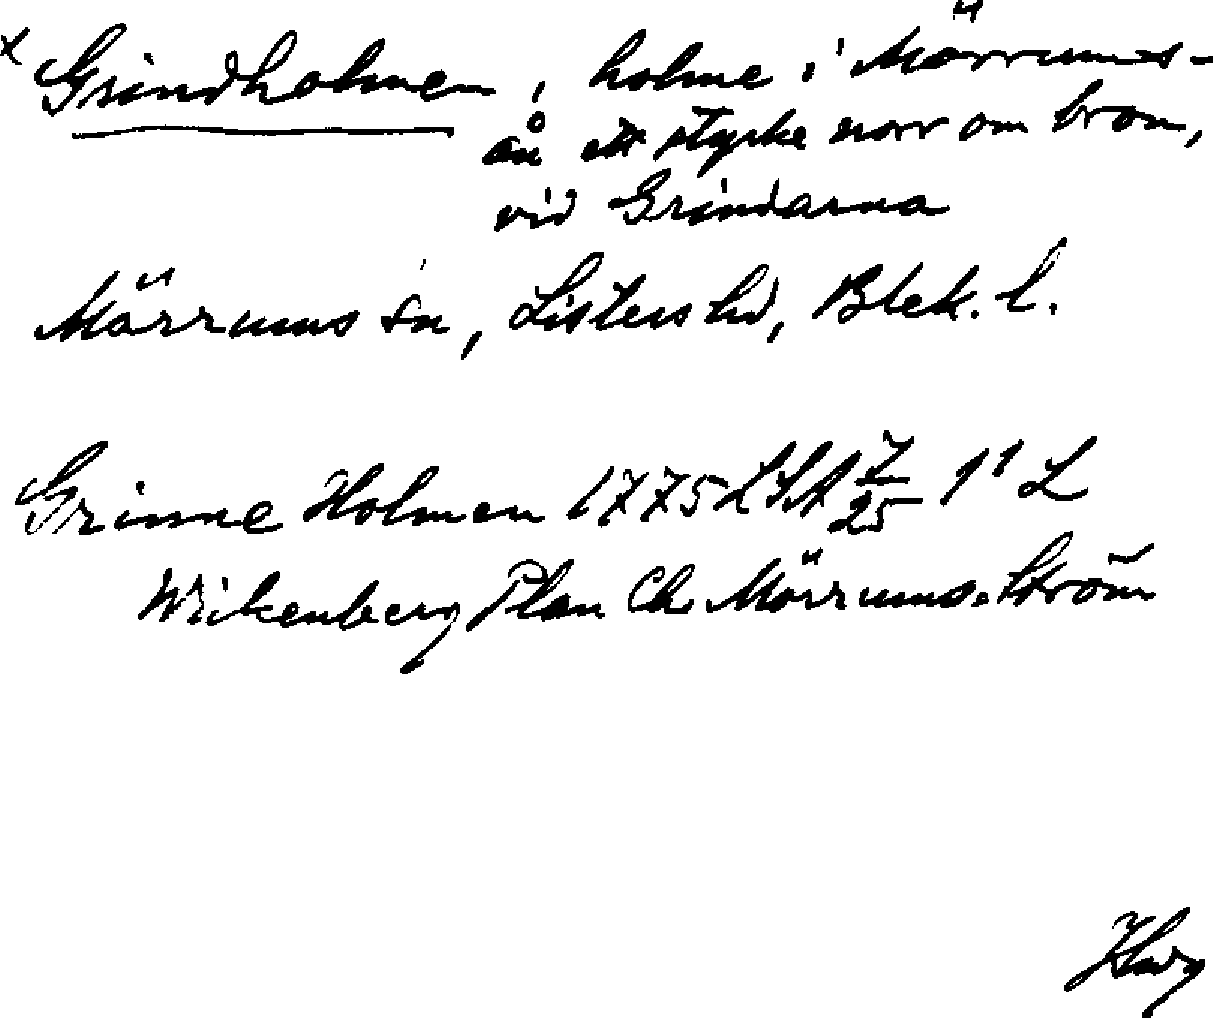 x Grindholmen, holme i Mörrums-
ån ett stycke norr om bron,
vid Grindarna
Mörrums sn, Listers hd, Blek. l.
Grinne Holmen 1775 LSA 7/25 1:1 L
Wikenberg Plan Ch Mörrums Ström